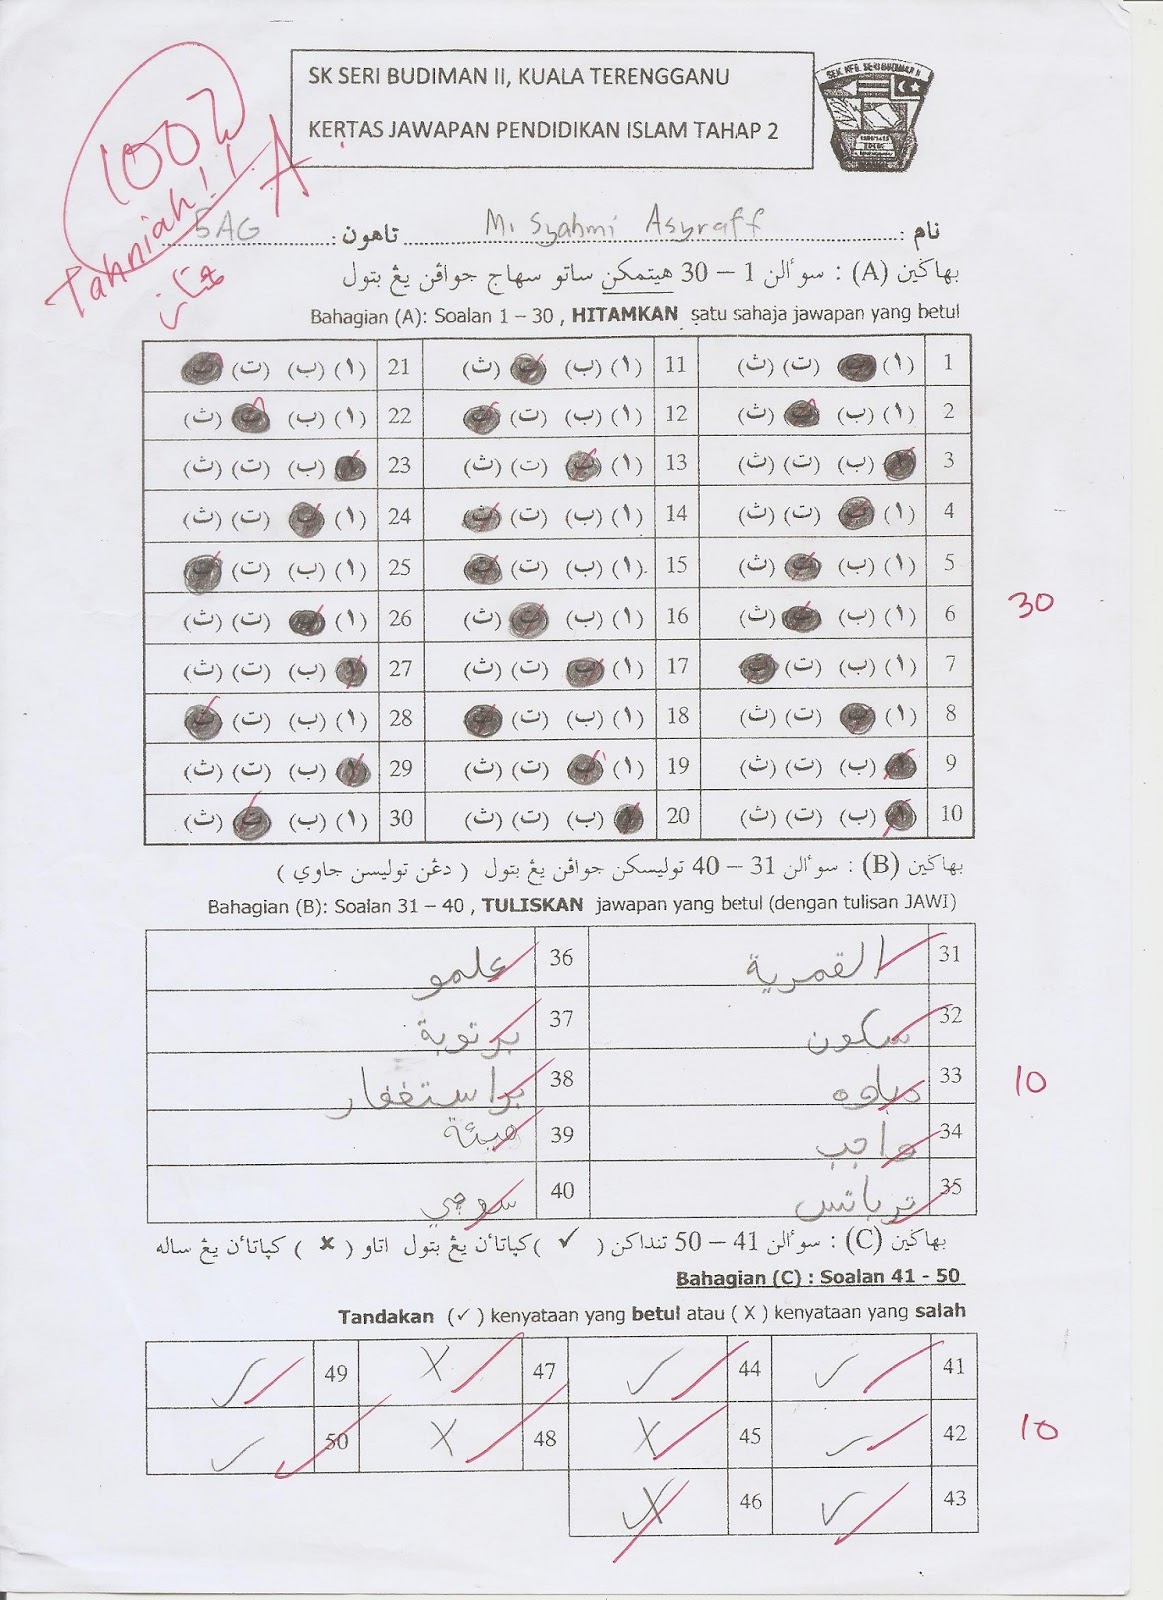 SK SERI BUDIMAN II, KUALA TERENGGANU
KERTAS JAWAPAN PENDIDIKAN ISLAM TAHAP 2
SEK. KEB. SERI BUDIMAN II
100%
Tahniah!!
A
نام : M. Syahmi Asyraff تاهون : 5AG
بهاݢين (A) : سوألن 1 – 30 هيتمكن ساتو سهاج جواڤن يڠ بتول
Bahagian (A): Soalan 1 – 30 , HITAMKAN satu sahaja jawapan yang betul
1 (١) (ت) (ث) 11 (١) (ب) (ث) 21 (١) (ب) (ت)
2 (١) (ب) (ث) 12 (١) (ب) (ت) 22 (١) (ب) (ث)
3 (ب) (ت) (ث) 13 (١) (ت) (ث) 23 (ب) (ت) (ث)
4 (١) (ت) (ث) 14 (١) (ب) (ت) 24 (١) (ت) (ث)
5 (١) (ب) (ث) 15 (١) (ب) (ت) 25 (١) (ب) (ت)
6 (١) (ب) (ث) 16 (١) (ب) (ث) 26 (١) (ت) (ث)
7 (١) (ب) (ت) 17 (١) (ت) (ث) 27 (ب) (ت) (ث)
8 (١) (ت) (ث) 18 (١) (ب) (ت) 28 (١) (ب) (ت)
9 (ب) (ت) (ث) 19 (١) (ت) (ث) 29 (ب) (ت) (ث)
10 (ب) (ت) (ث) 20 (ب) (ت) (ث) 30 (١) (ب) (ث)
30
بهاݢين (B) : سوألن 31 – 40 توليسكن جواڤن يڠ بتول ( دڠن توليسن جاوي )
Bahagian (B): Soalan 31 – 40 , TULISKAN jawapan yang betul (dengan tulisan JAWI)
31 القمرية 36 علمو
32 سكون 37 برتوبة
33 دباوه 38 براستغفار
34 واجب 39 هيئة
35 ترباتس 40 سوچي
10
بهاݢين (C) : سوألن 41 – 50 تنداكن ( ✓ ) كڽاتاٴن يڠ بتول اتاو ( ✗ ) كڽاتاٴن يڠ ساله
Bahagian (C) : Soalan 41 - 50
Tandakan (✓) kenyataan yang betul atau ( X ) kenyataan yang salah
41 ✓ 44 ✓ 47 X 49 ✓
42 ✓ 45 X 48 X 50 ✓
43 ✓ 46 X
10